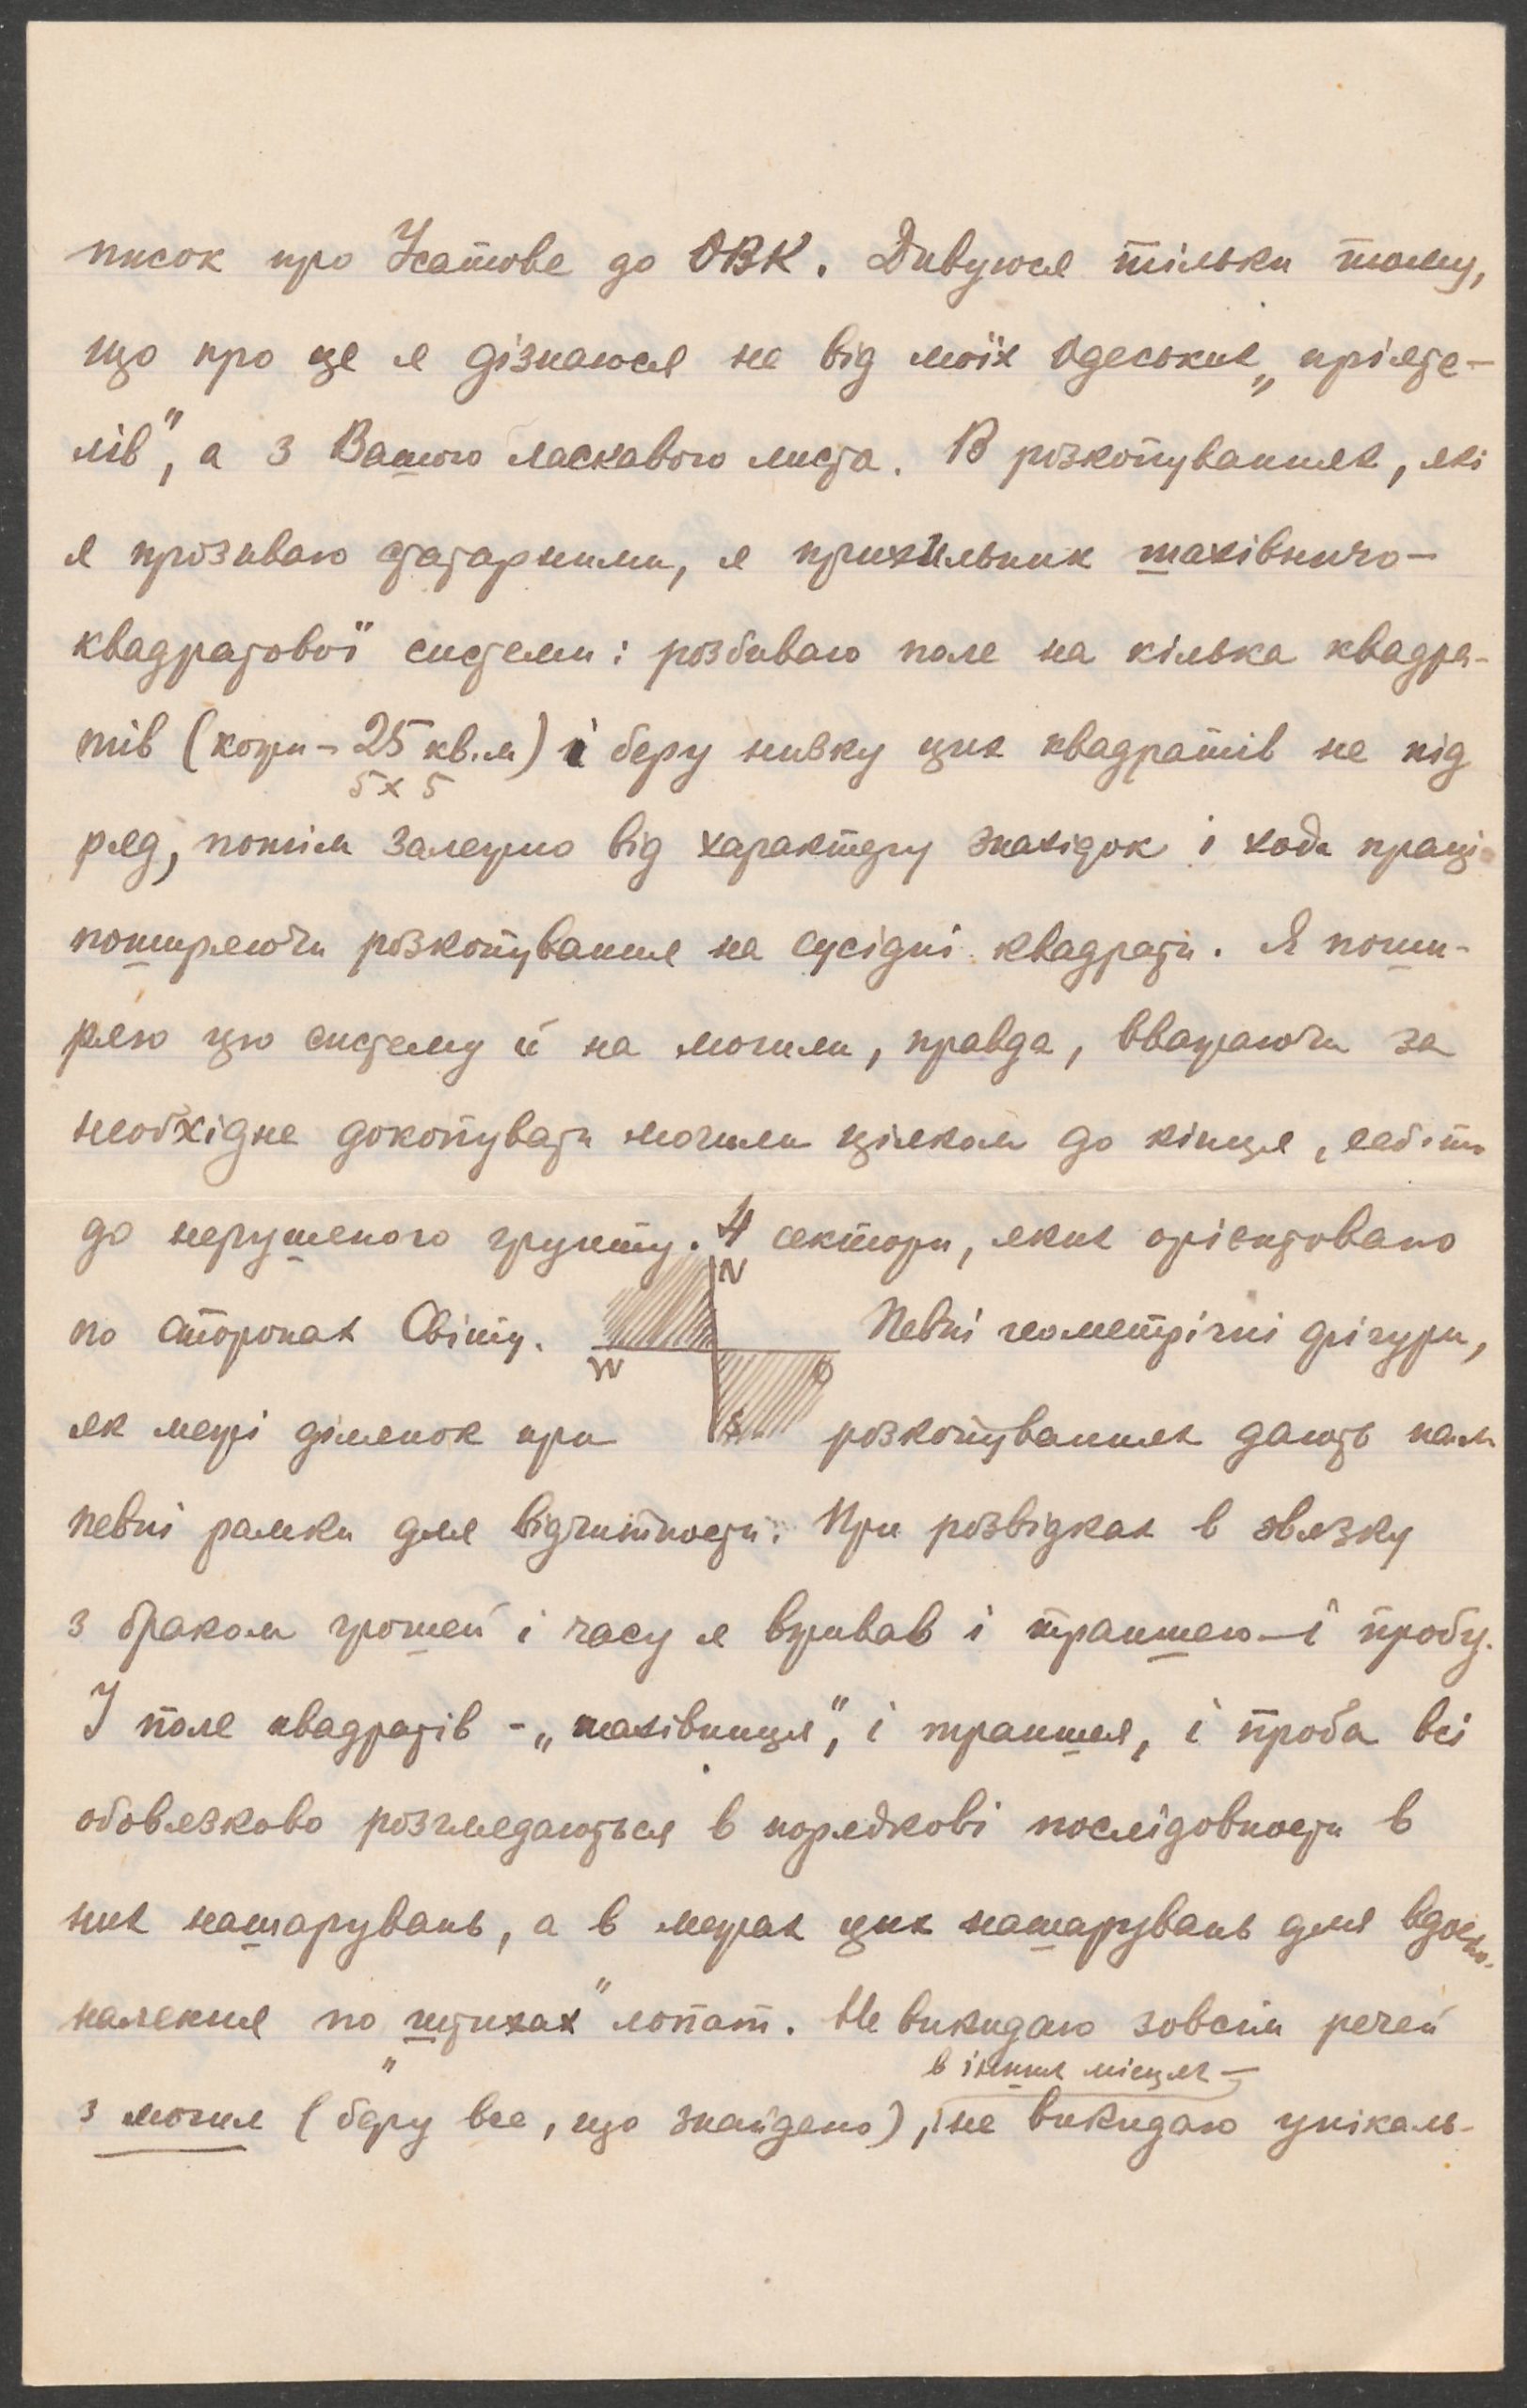 писок про Усатове до ОВК. Дивуюся тільки тому,
що про це я дізнаюся не від моїх Одеських „пріяте-
лів", а з Вашого ласкавого листа. В розкопуваннях, які
я прозиваю стаціарними, я прихильник шахівнично-
квадратової системи: розбиваю поле на кілька квадра-
тів (кожн – 25 кв.м) і беру низку цих квадратів не під
5 x 5
ряд, потім залежно від характеру знахідок і хода праці
поширяючи розкопування на сусідні квадрати. Я поши-
ряю цю систему й на могили, правда, вважаючи за
необхідне докопувати могили цілком до кінця, себто
до нерушеного грунту. 4 сектори, яких орієнтовано
N
по сторонах Світу. Певні геометрічні фігури,
W O
як межі ділянок при розкопуваннях дають нам
S
певні рамки для відчитности. При розвідках в звязку
з браком грошей і часу я вживав і траншею – і пробу.
І поле квадратів – „шахівниця", і траншея, і проба всі
обовязково розглядаються в порядкові послідовности в
них нашарувань, а в межах цих нашарувань для вдоско-
налення по „штихах" лопат. Не викидаю зовсім речей
в інших місцях –
з могил (беру все, що знайдено), не викидаю унікаль-